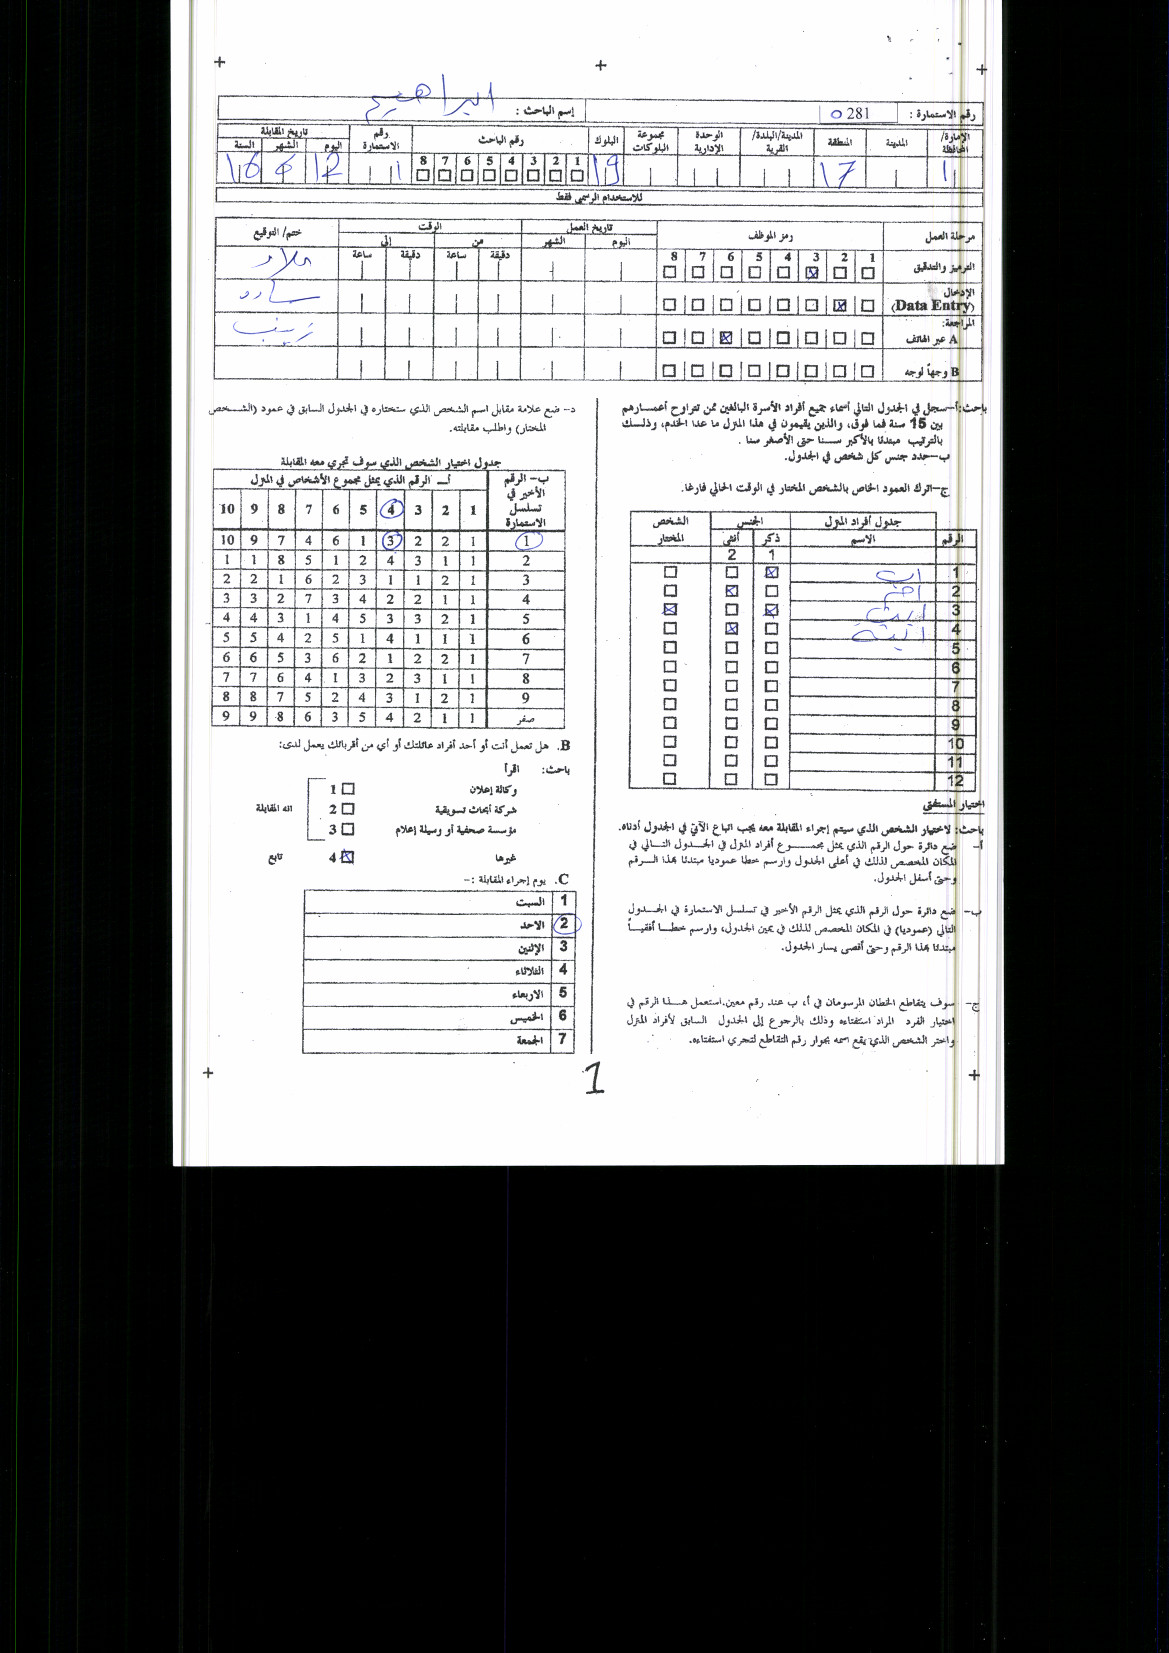 رقم الاستمارة : 0281 إسم الباحث : ابراهيم
الإمارة/المحافظة المدينة المنطقة المدينة/البلدة/القرية الوحدة الإدارية مجموعة البلوكات البلوك رقم الباحث رقم الاستمارة تاريخ المقابلة
1 2 3 4 5 6 7 8 اليوم الشهر السنة
1 17 19 1 12 6 16
للاستخدام الرسمي فقط
مرحلة العمل رمز الموظف تاريخ العمل الوقت ختم/ التوقيع
اليوم الشهر من إلى
1 2 3 4 5 6 7 8 دقيقة ساعة دقيقة ساعة
الترميز والتدقيق
الإدخال
(Data Entry) سارة
المراجعة:
A عبر الهاتف زينب
B وجهاً لوجه
باحث: أ–سجل في الجدول التالي أسماء جميع أفراد الأسرة البالغين ممن تتراوح أعمارهم
بين 15 سنة فما فوق، والذين يقيمون في هذا المنزل ما عدا الخدم، وذلك
بالترتيب مبتدئا بالأكبر سنا حتى الأصغر سنا .
ب–حدد جنس كل شخص في الجدول.
ج–اترك العمود الخاص بالشخص المختار في الوقت الحالي فارغا.
جدول أفراد المنزل الجنس الشخص
الرقم الاسم ذكر أنثى المختار
1 2
1 اب
2 ام
3 ابن
4 ابنة
5
6
7
8
9
10
11
12
اختيار المستفتى
باحث: لاختيار الشخص الذي سيتم إجراء المقابلة معه يجب اتباع الآتي في الجدول أدناه.
أ– ضع دائرة حول الرقم الذي يمثل مجموع أفراد المنزل في الجدول التالي في
المكان المخصص لذلك في أعلى الجدول وارسم خطا عموديا مبتدئا بهذا الرقم
وحتى أسفل الجدول.
ب– ضع دائرة حول الرقم الذي يمثل الرقم الأخير في تسلسل الاستمارة في الجدول
التالي (عموديا) في المكان المخصص لذلك في يمين الجدول، وارسم خطا أفقياً
مبتدئا بهذا الرقم وحتى أقصى يسار الجدول.
ج– سوف يتقاطع الخطان المرسومان في أ، ب عند رقم معين.استعمل هذا الرقم في
اختيار الفرد المراد استفتاءه وذلك بالرجوع إلى الجدول السابق لأفراد المنزل
واختر الشخص الذي يقع اسمه بجوار رقم التقاطع لتجري استفتاءه.
د– ضع علامة مقابل اسم الشخص الذي ستختاره في الجدول السابق في عمود (الشخص
المختار) واطلب مقابلته.
جدول اختيار الشخص الذي سوف تجري معه المقابلة
ب– الرقم الأخير في تسلسل الاستمارة أ– الرقم الذي يمثل مجموع الأشخاص في المنزل
1 2 3 4 5 6 7 8 9 10
1 1 2 2 3 1 6 4 7 9 10
2 1 1 3 4 2 1 5 8 1 1
3 1 2 1 1 3 2 6 1 2 2
4 1 1 2 2 4 3 7 2 3 3
5 1 2 3 3 5 4 1 3 4 4
6 1 1 1 4 1 5 2 4 5 5
7 1 2 2 1 2 6 3 5 6 6
8 1 1 3 2 3 1 4 6 7 7
9 1 2 1 3 4 2 5 7 8 8
صفر 1 1 2 4 5 3 6 8 9 9
B. هل تعمل أنت أو أحد أفراد عائلتك أو أي من أقربائك يعمل لدى:
باحث: اقرأ
وكالة إعلان 1
شركة أبحاث تسويقية 2 انه المقابلة
مؤسسة صحفية أو وسيلة إعلام 3
غيرها 4 تابع
C. يوم إجراء المقابلة :–
1 السبت
2 الاحد
3 الإثنين
4 الثلاثاء
5 الاربعاء
6 الخميس
7 الجمعة
1